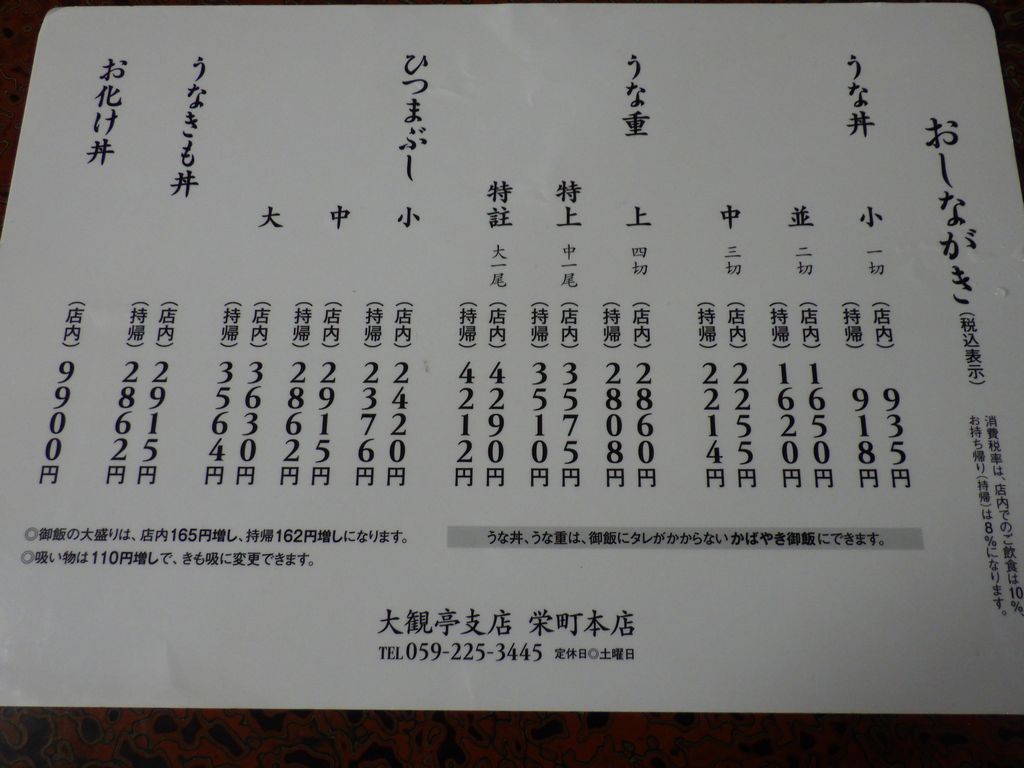 おしながき（税込表示）
消費税率は、店内でのご飲食は10%、
お持ち帰り（持帰）は8%になります。
うな丼
小 一切
（店内）935円
（持帰）918円
並 二切
（店内）1650円
（持帰）1620円
中 三切
（店内）2255円
（持帰）2214円
うな重
上 四切
（店内）2860円
（持帰）2808円
特上 中一尾
（店内）3575円
（持帰）3510円
特註 大一尾
（店内）4290円
（持帰）4212円
ひつまぶし
小
（店内）2420円
（持帰）2376円
中
（店内）2915円
（持帰）2862円
大
（店内）3630円
（持帰）3564円
うなきも丼
（店内）2915円
（持帰）2862円
お化け丼
（店内）9900円
うな丼、うな重は、御飯にタレがかからないかばやき御飯にできます。
◎御飯の大盛りは、店内165円増し、持帰162円増しになります。
◎吸い物は110円増しで、きも吸に変更できます。
大観亭支店 栄町本店
TEL059-225-3445 定休日◎土曜日